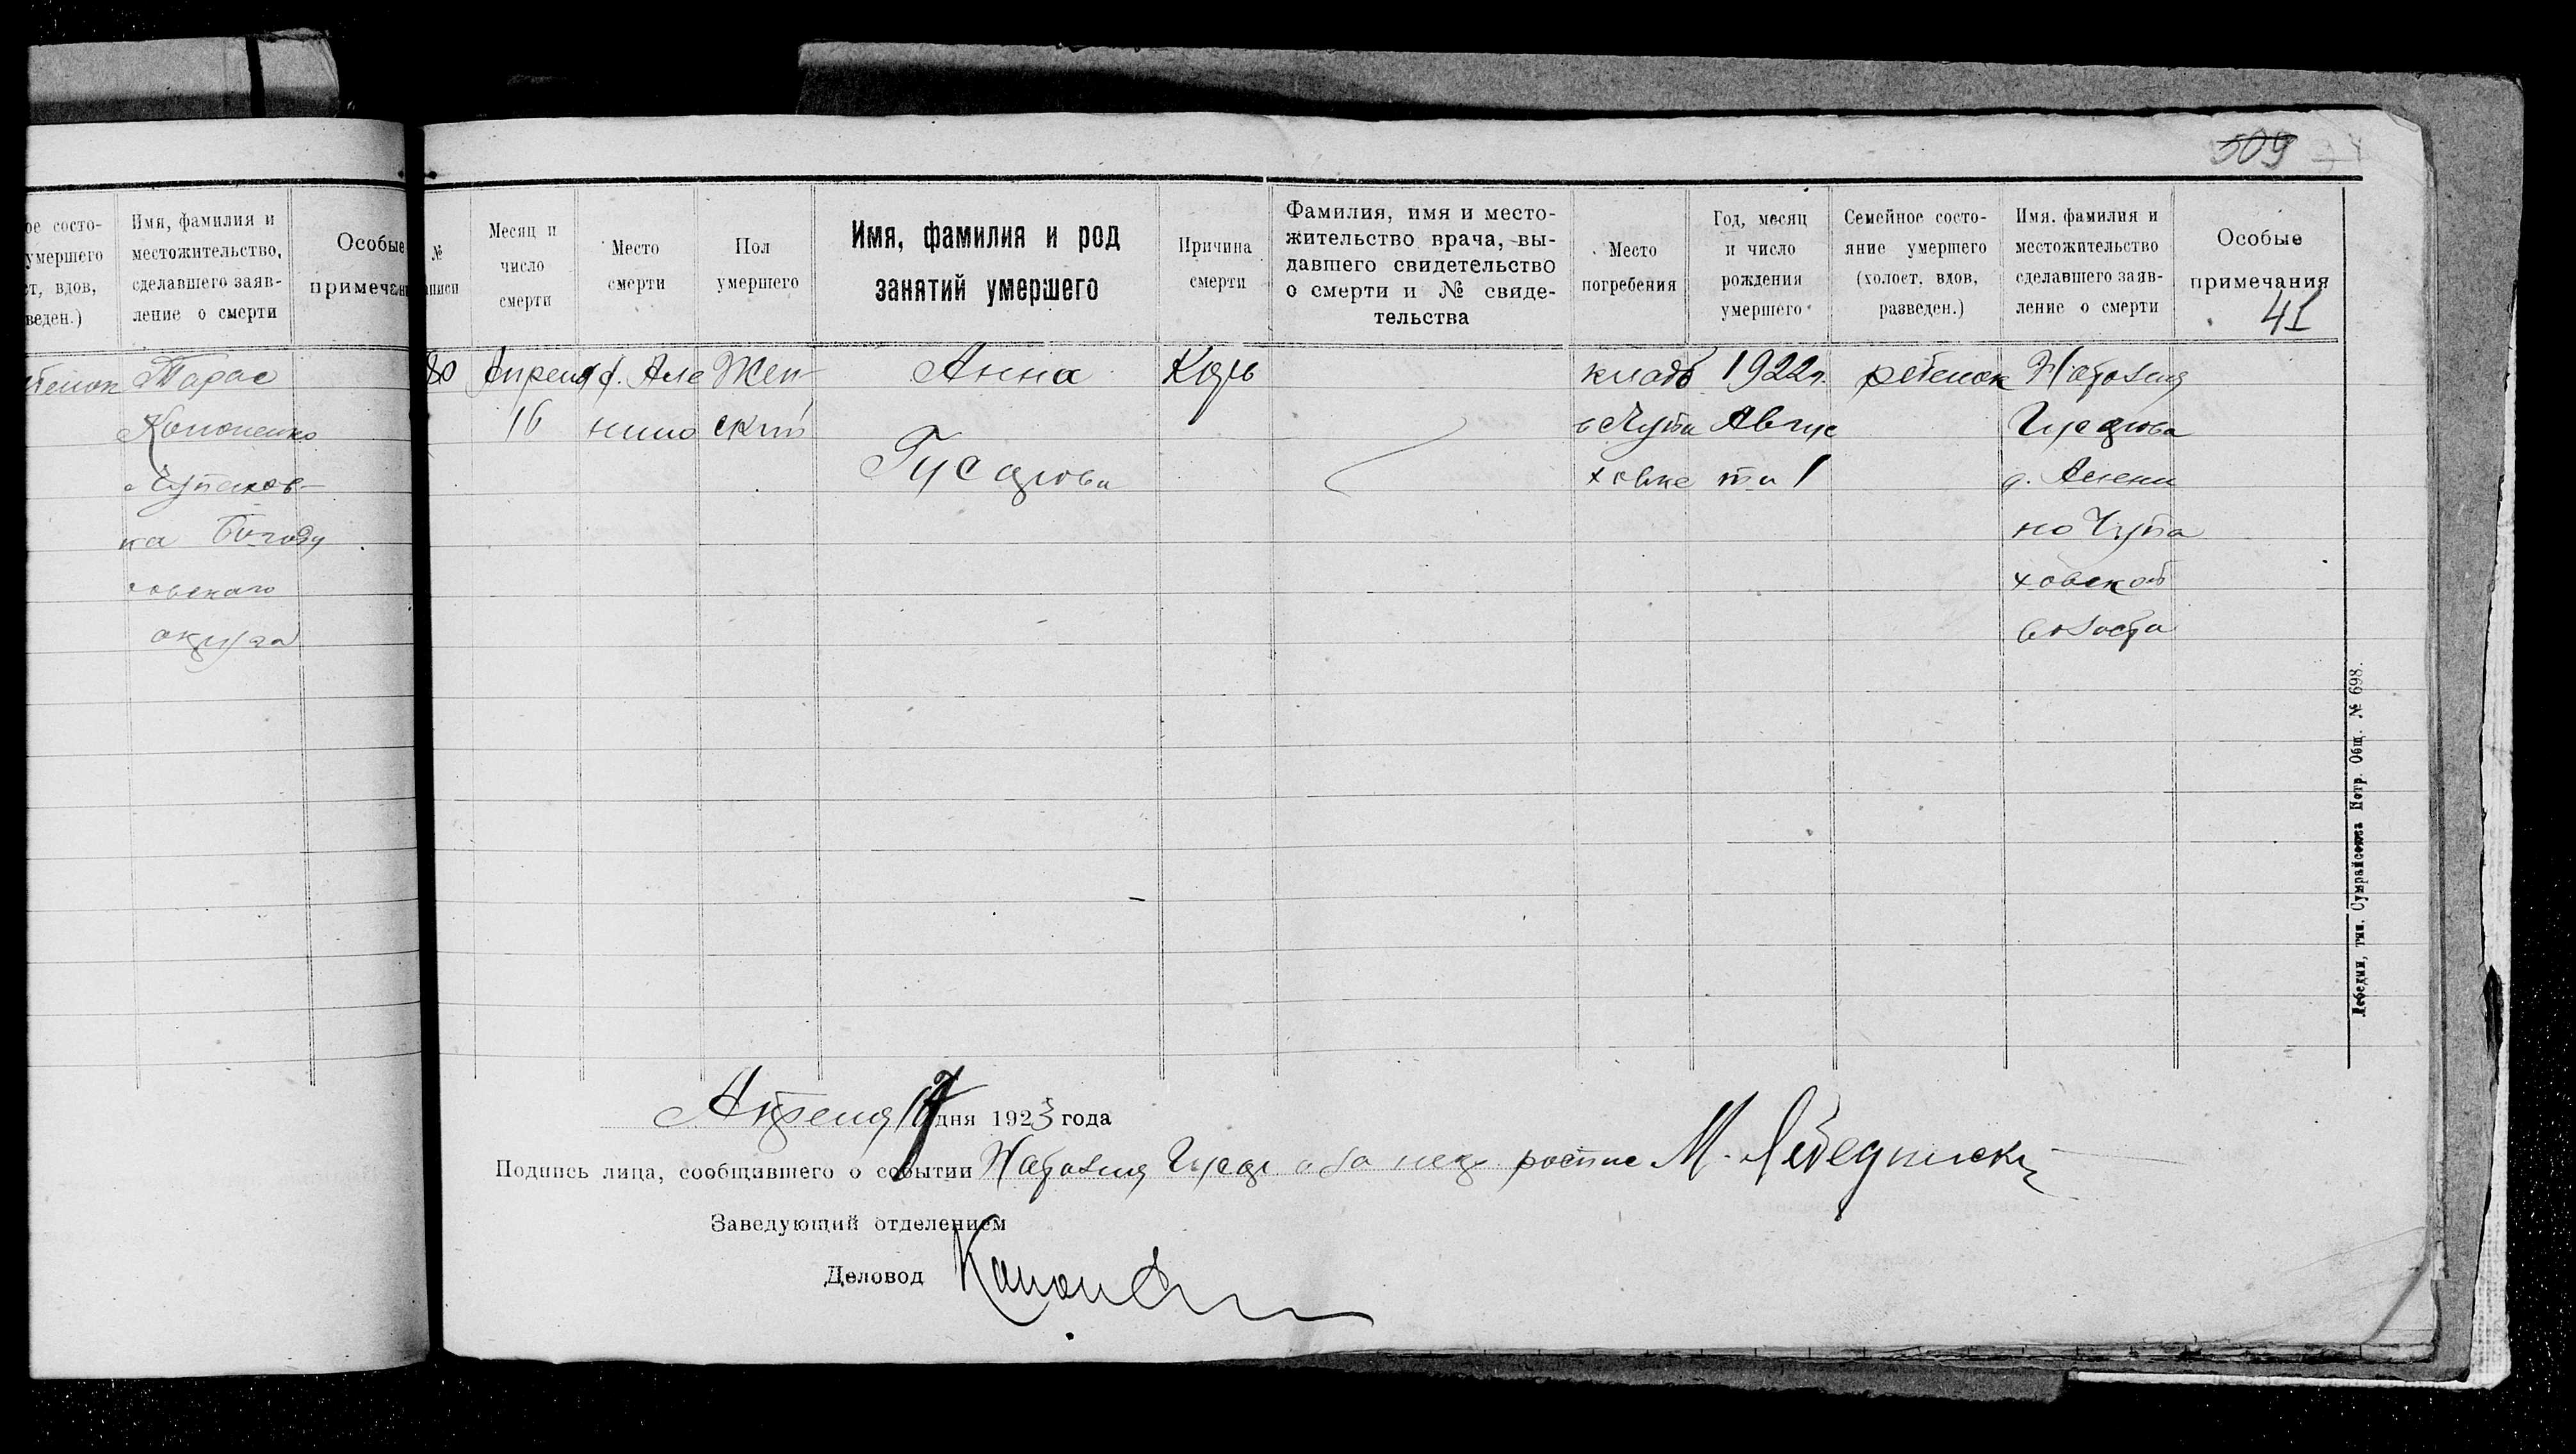 ое состо-
умершего
ст, вдов,
веден.)
Имя, фамилия и
местожительство,
сделавшего заяв-
ление о смерти
Особые
примечан
Тарас
Кононенко
Чупахов-
ка Богоду
ховского
округа
509
№
аписи
Месяц и
число
смерти
Место
смерти
Пол
умершего
Имя, фамилия и род
занятий умершего
Причина
смерти
Фамилия, имя и место-
жительство врача, вы-
давшего свидетельство
о смерти и № свиде-
тельства
Место
погребения
Год, месяц
и число
рождения
умершего
Семейное состо-
яние умершего
(холост, вдов,
разведен.)
Имя. фамилия и
местожительство
сделавшего заяв-
ление о смерти
Особые
примечания
41
80
Апреля
16
д. Але
нино
Жен-
ский
Анна
Гусарова
Корь
кладб
в Чупа
ховке
1922 г.
Авгус
та 1
ребенок
Наталия
Гусарова
д. Алени
но Чупа
ховской
волости
Лебедин, тип. Сумрайсоюза Потр. Общ. № 698.
Апреля 17 дня 1923 года
Подпись лица, сообщившего о событии Наталия Гусарова ростис М. Лебединский
Заведующий отделением
Деловод